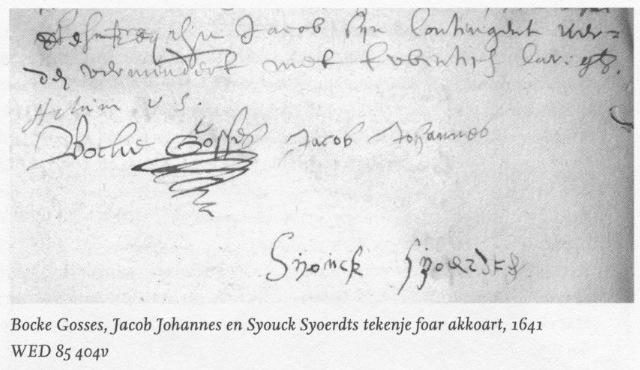 Jacob syn Contingent ver=
vermindert met
Actum U S.
Bocke Gosses Jacob Johannes
Syouck Syoerdts
Bocke Gosses, Jacob Johannes en Syouck Syoerdts tekenje foar akkoart, 1641
WED 85 404v